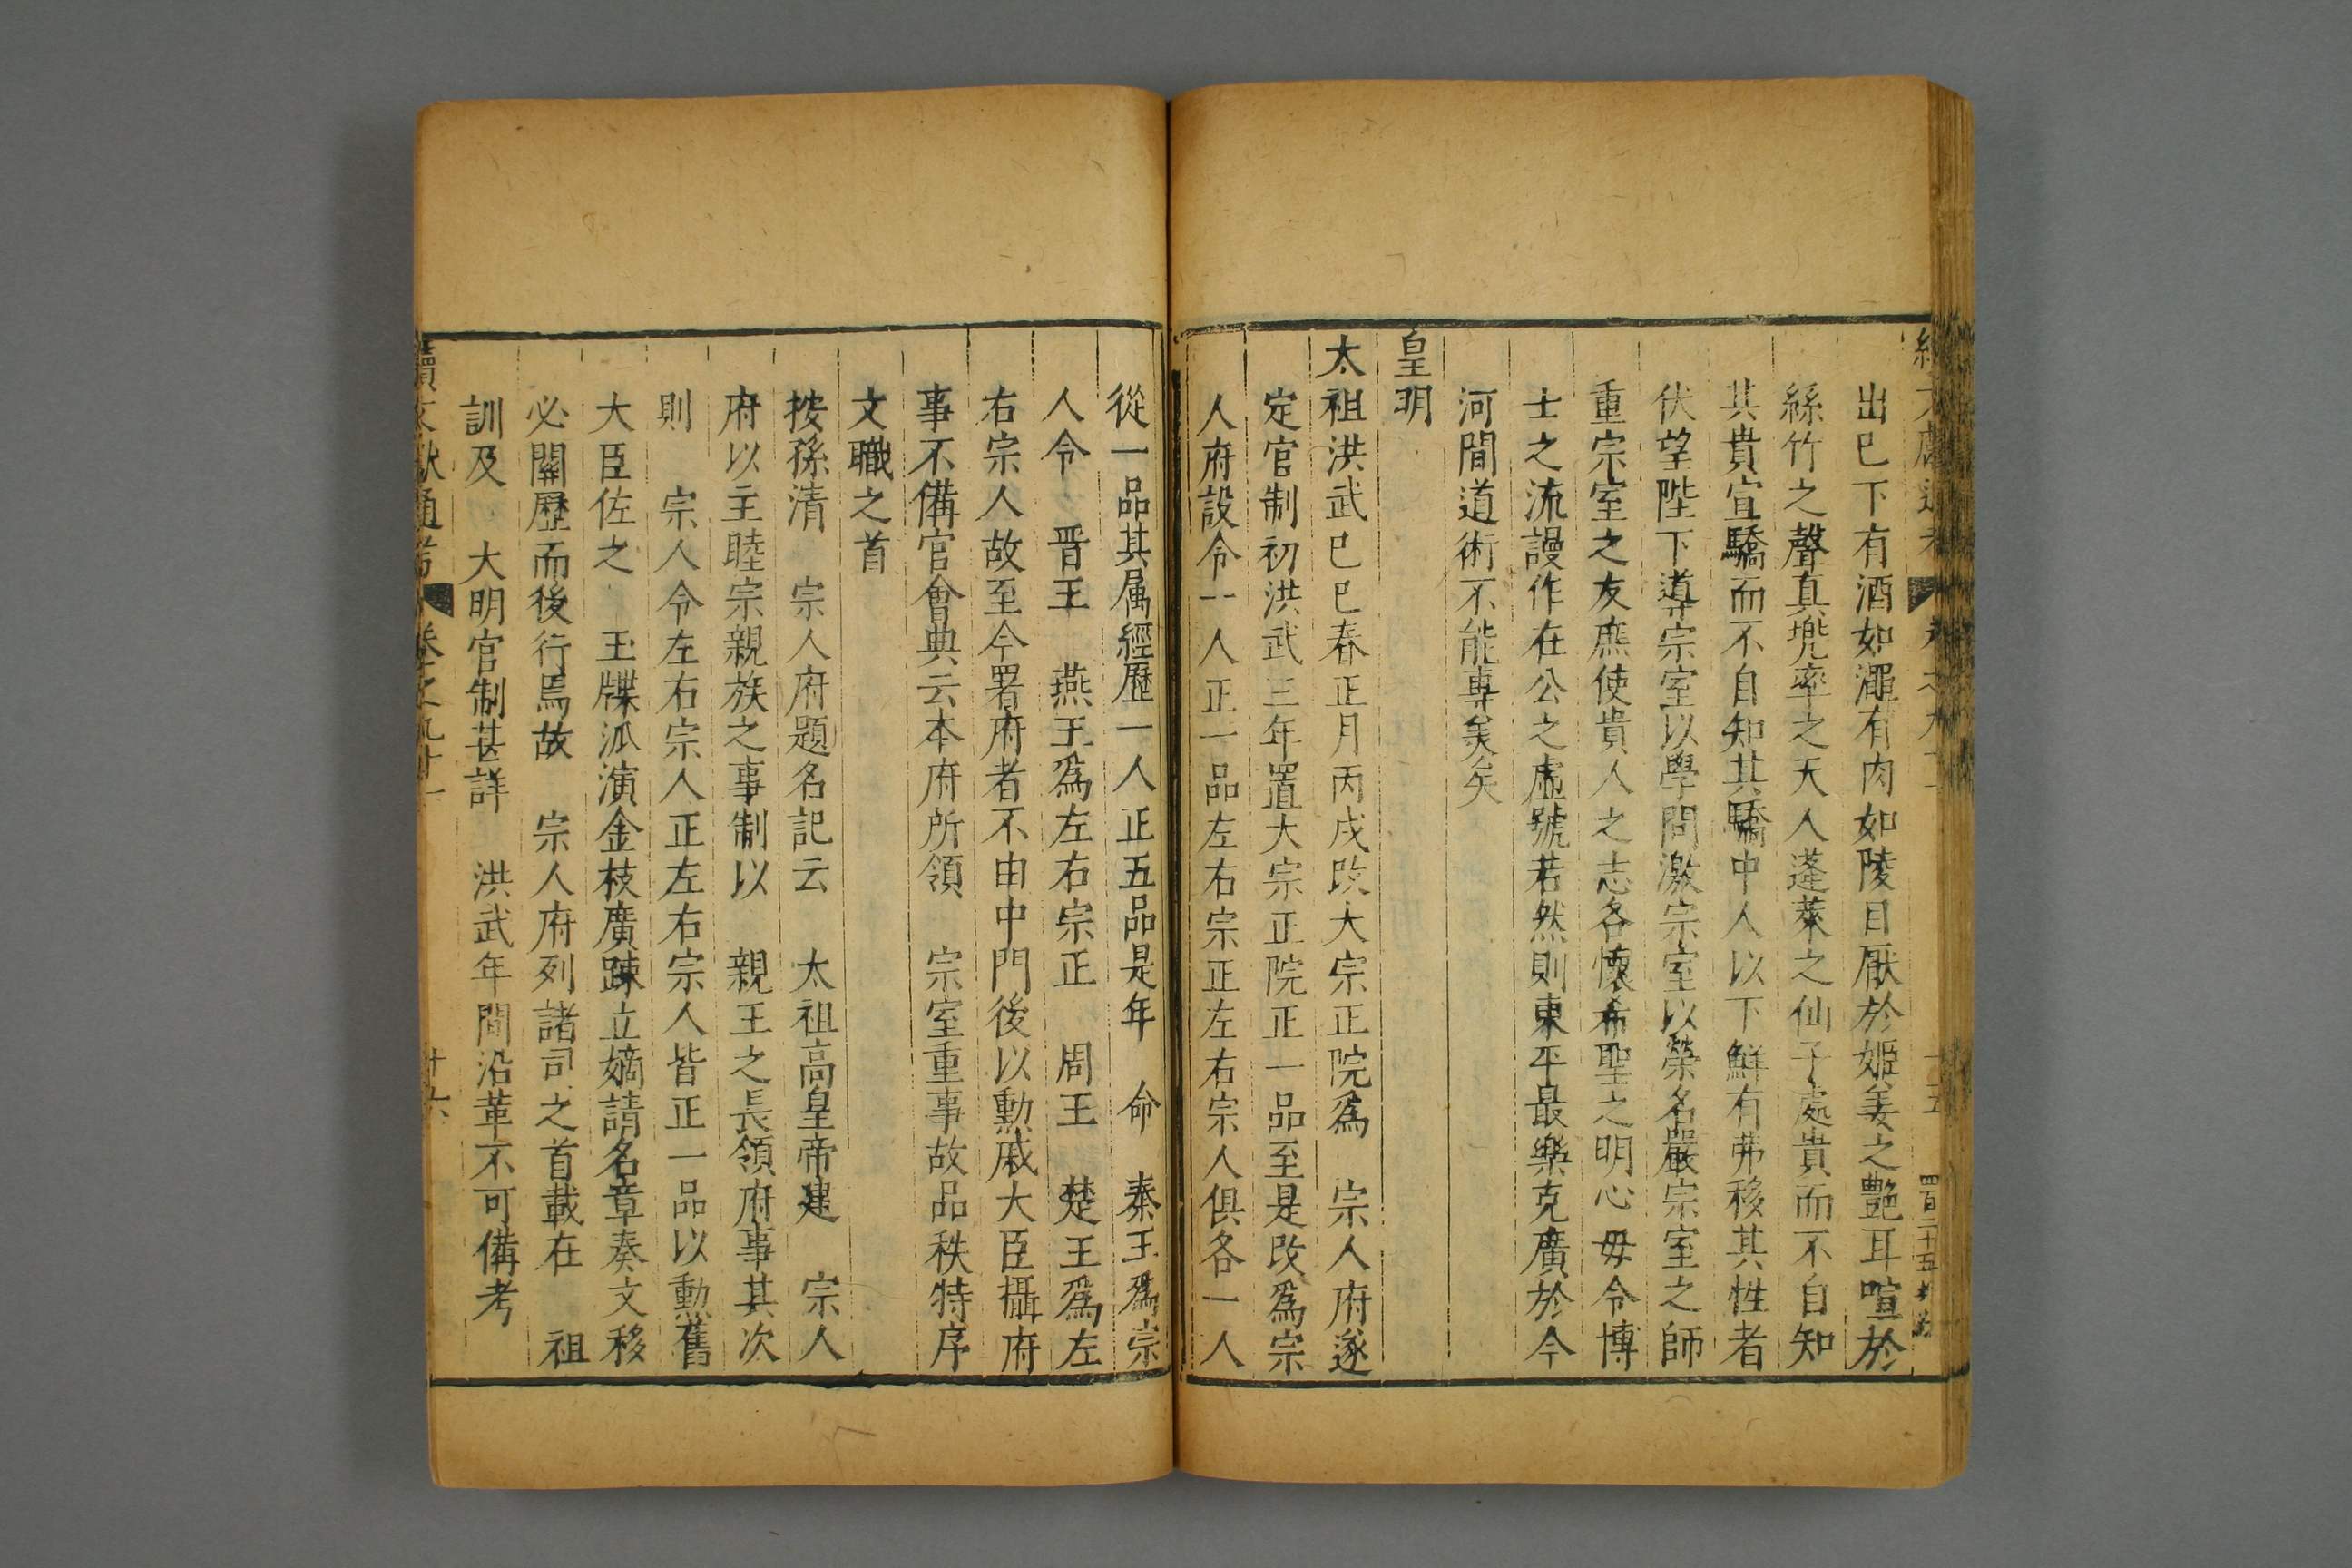 出巳下有酒如澠有肉如陵目厭於姬姜之艷耳喧於
絲竹之聲真兠率之天人蓬萊之仙子處貴而不自知
其貴宜驕而不自知其驕中人以下鮮有弗移其性者
伏望陛下導宗室以學問激宗室以榮名嚴宗室之師
重宗室之友庶使貴人之志各懷希聖之明心毋令博
士之流謾作在公之虛號若然則東平最樂克廣於今
河間道術不能專美矣
皇明
太祖洪武巳巳春正月丙戌改大宗正院爲 宗人府遂
定官制初洪武三年置大宗正院正一品至是改爲宗
人府設令一人正一品左右宗正左右宗人俱各一人
從一品其属經歷一人正五品是年 命 秦王爲宗
人令 晋王 燕王爲左右宗正 周王 楚王爲左
右宗人故至今署府者不由中門後以勳戚大臣攝府
事不備官會典云本府所領 宗室重事故品秩特序
文職之首
按孫清 宗人府題名記云 太祖高皇帝建 宗人
府以主睦宗親族之事制以 親王之長領府事其次
則 宗人令左右宗人正左右宗人皆正一品以勳舊
大臣佐之 玉牒派演金枝廣踈立嫡請名章奏文移
必關歷而後行焉故 宗人府列諸司之首載在 祖
訓及 大明官制甚詳 洪武年間沿革不可備考
續文献通考 卷之九十一 十六